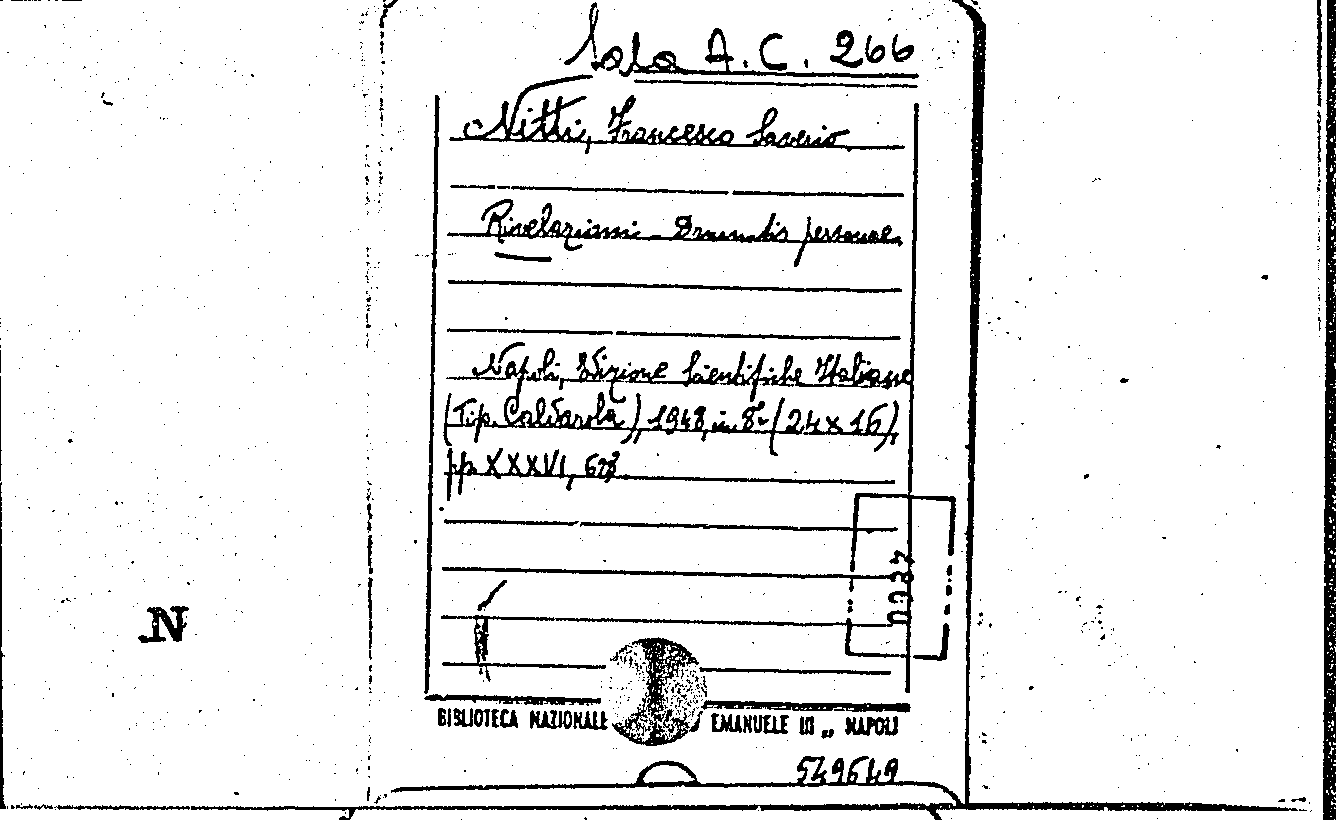 Sala A.C. 266
Nitti, Francesco Saverio
Rivelazioni - Dramatis personae
Napoli, Edizione Scientifiche Italiane
(Tip. Caldarola), 1948, in 8° (24x16),
pp. XXXVI, 
N
BIBLIOTECA NAZIONALE EMANUELE III „ NAPOLI
549649